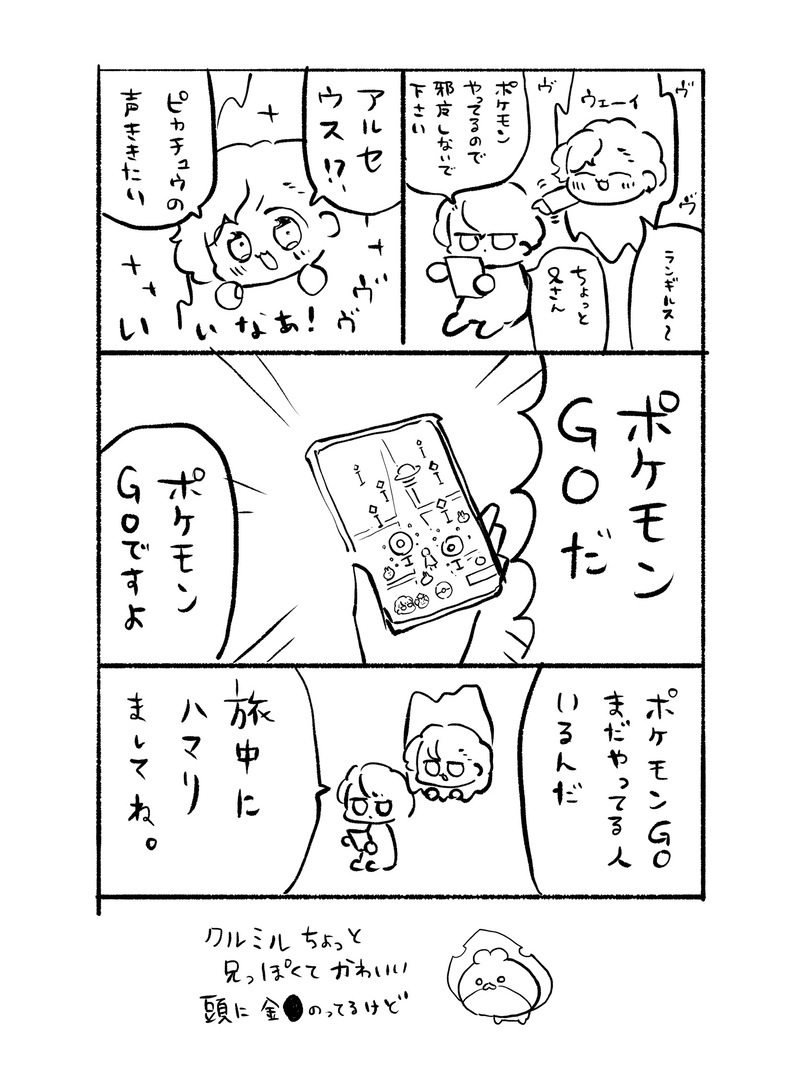 ウェーイ
ヴ
ヴ
ヴ
ランギルス〜
ちょっと
兄さん
ポケモン
やってるので
邪魔しないで
下さい
アルセ
ウス!?
ピカチュウの
声ききたい
いいなぁ!
ヴ
ヴ
ポケモン
GOだ
ポケモン
GOですよ
ポケモンGO
まだやってる人
いるんだ
旅中に
ハマり
ましてね。
クルミル ちょっと
兄っぽくて かわいい
頭に 金●のってるけど